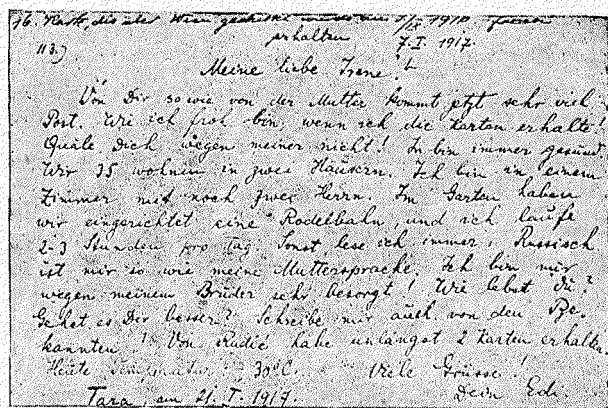 16. Karte, die über Wien geschickt wurde am 5/IX 1916
erhalten 7. I. 1917.
113.)
Meine liebe Irene!
Von Dir sowie von der Mutter kommt jetzt sehr viel
Post. Wie ich froh bin, wenn ich die Karten erhalte!
Quäle Dich wegen meiner nicht! Ich bin immer gesund.
Wir 35 wohnen in zwei Häusern. Ich bin in einem
Zimmer mit noch zwei Herrn. Im Garten haben
wir eingerichtet eine Rodelbahn, und ich laufe
2-3 Stunden pro Tag. Sonst lese ich immer, Russisch
ist mir so wie meine Muttersprache. Ich bin nur
wegen meinem Bruder sehr besorgt! Wie lebst Du?
Gehet es Dir besser? Schreibe mir auch von den Be-
kannten! Von Rudić habe unlängst 2 Karten erhalten.
Heute Temperatur 30°C. Viele Grüsse!
Tara, am 21. I. 1917. Dein Edi.